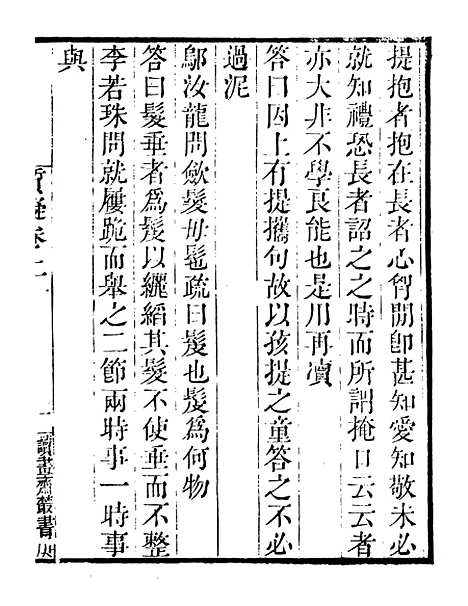 提抱者抱在長者心胷間卽甚知愛知敬未必
就知禮恐長者詔之之時而所謂掩口云云者
亦大非不學良能也是用再瀆
答曰因上有提攜句故以孩提之童答之不必
過泥
鄔汝龍問歛髮毋髢疏曰髲也髲爲何物
答曰髮垂者爲髲以纚縚其髮不使垂而不整
李若珠問就屨跪而舉之二節兩時事一時事
與
質疑卷
讀畫齋叢書